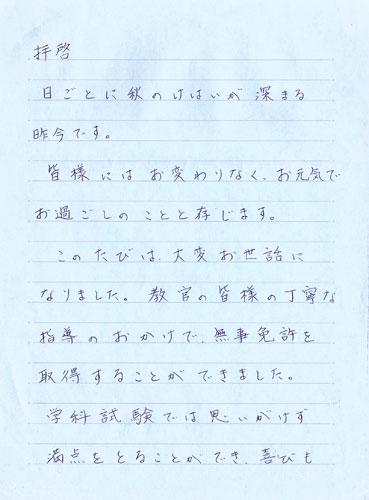 拝啓
日ごとに秋のけはいが深まる
昨今です。
皆様にはお変わりなく、お元気で
お過ごしのことと存じます。
このたびは、大変お世話に
なりました。教官の皆様の丁寧な
指導のおかげで、無事免許を
取得することができました。
学科試験では思いがけず
満点をとることができ、喜びも